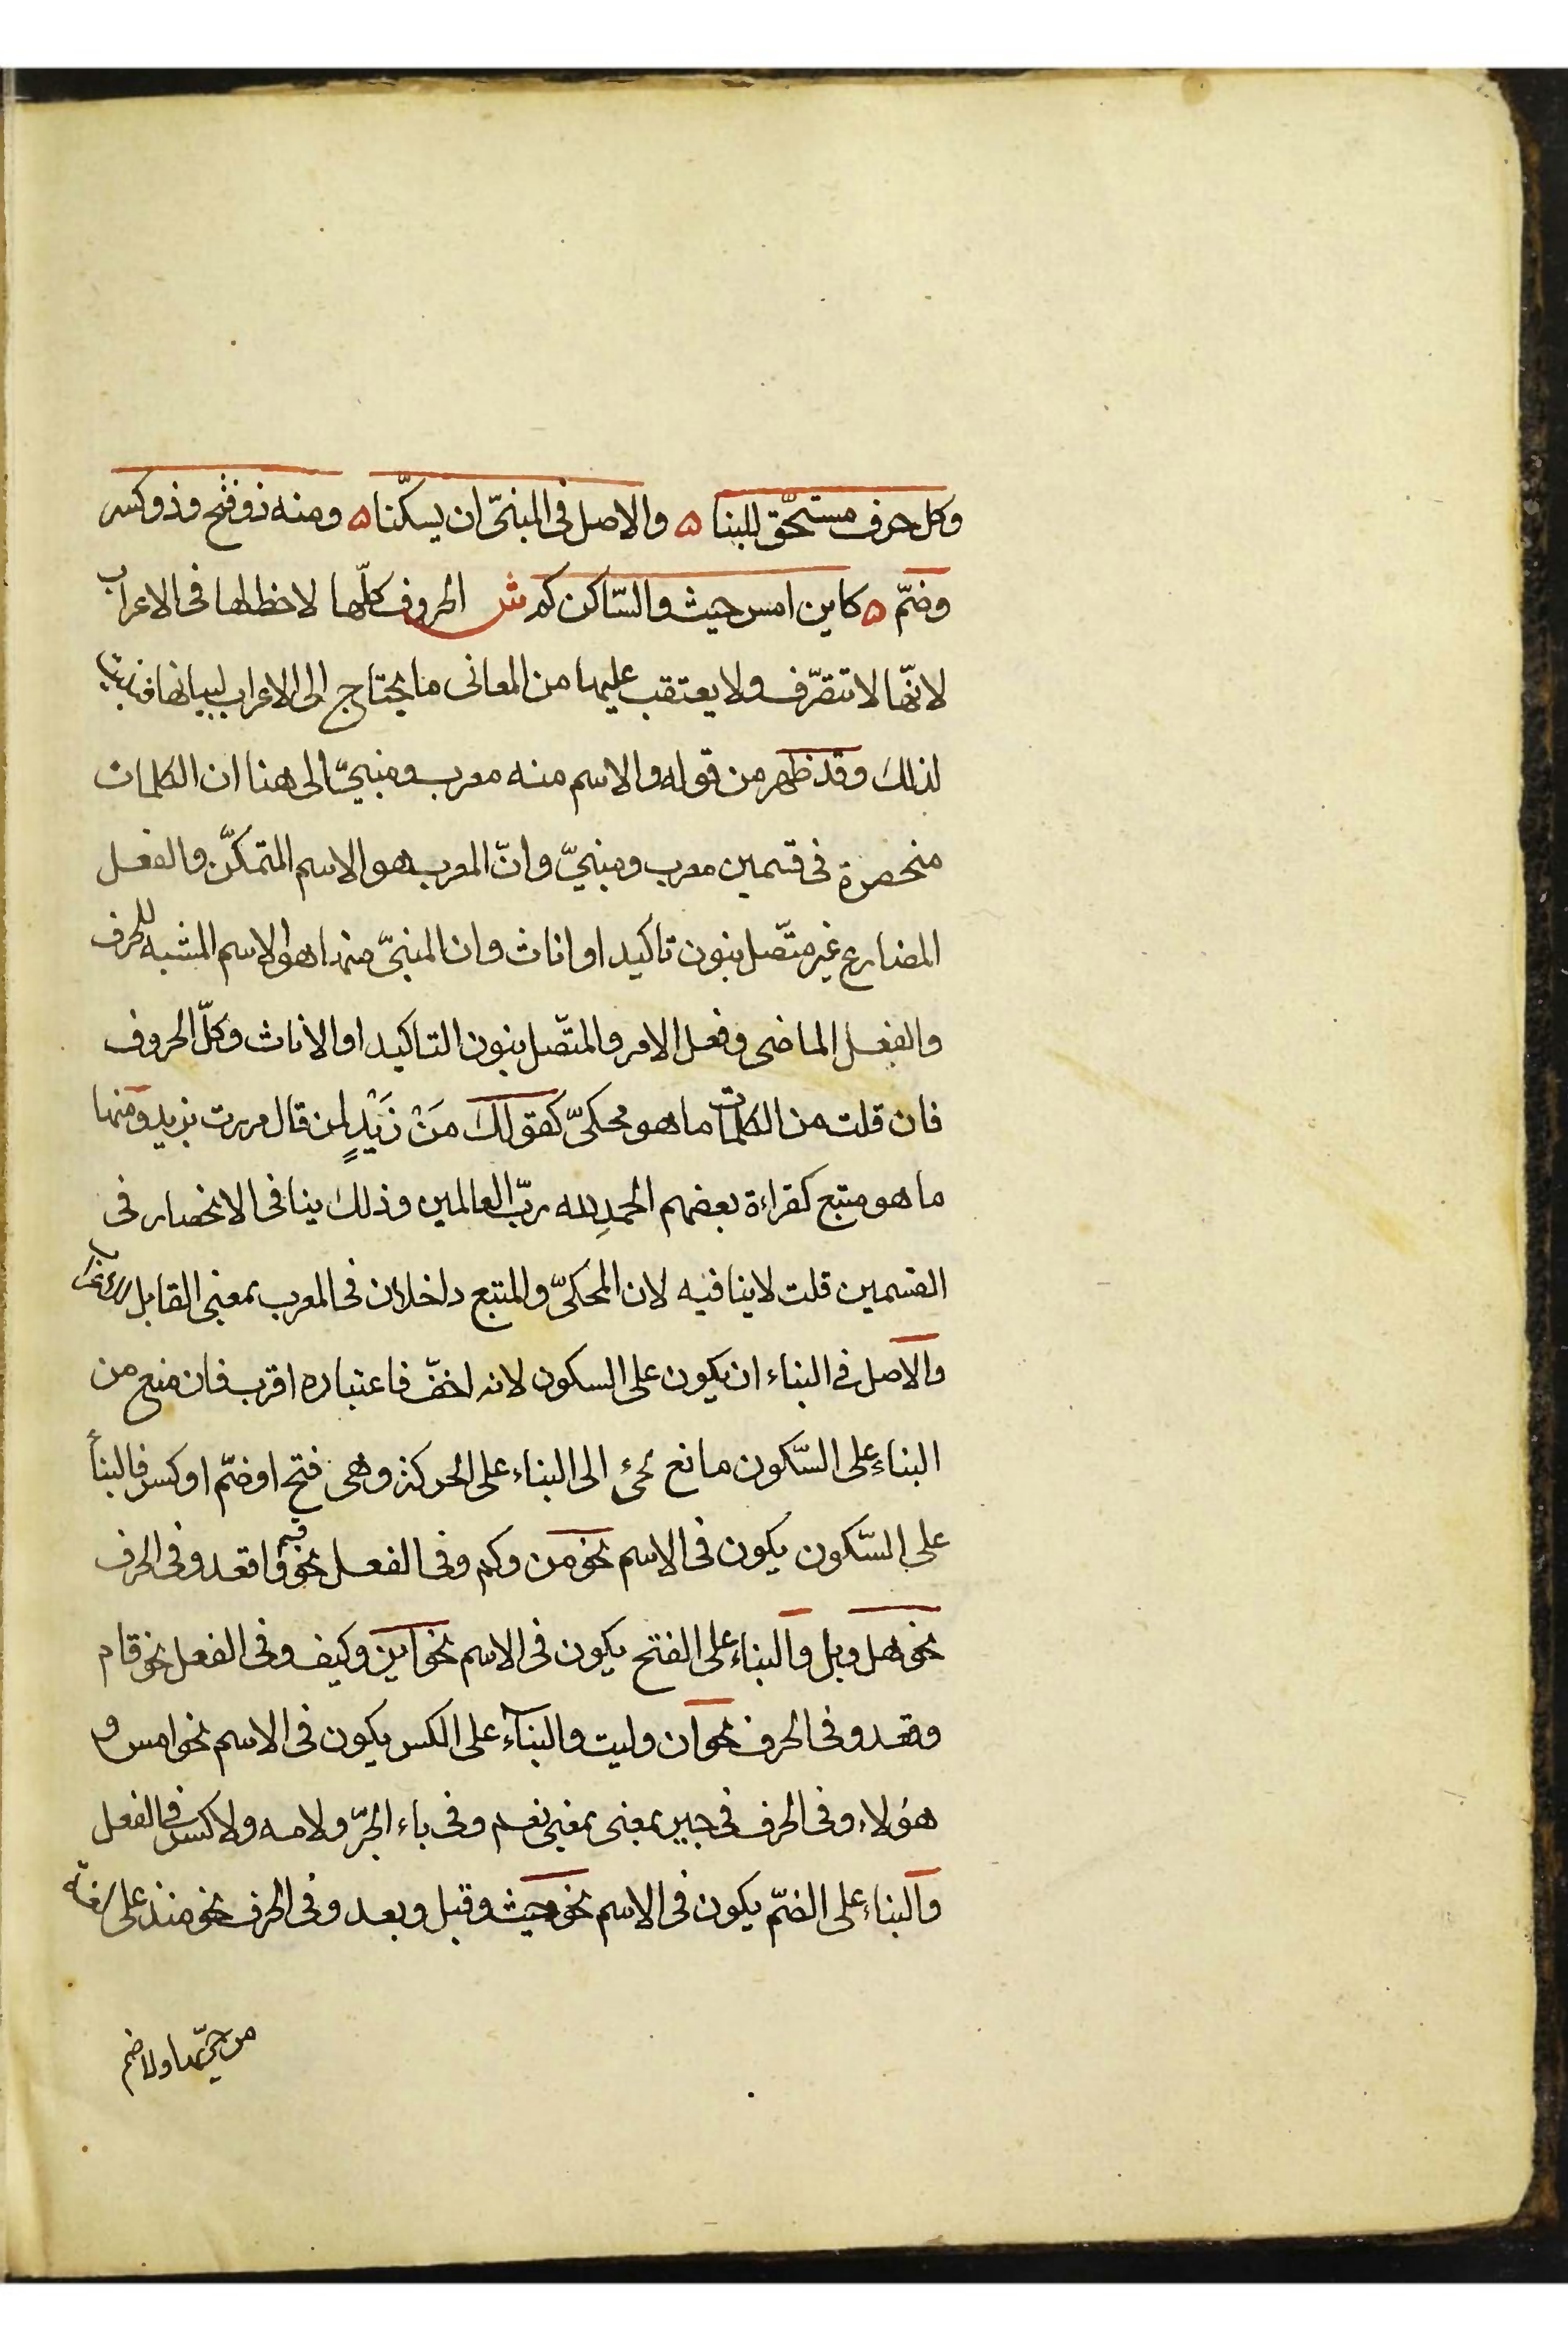 وكل حرف مستحّق للبنا ه والاصل فى المبنىّ ان يسكّنا ه ومنه ذو فتح وذو كسر
وضمّ ه كاين امس حيث والسّاكن كم ش الحروف كلّها لا حظ لها فى الاعراب
لانّها لا تتصّرف ولا يعتقب عليها من المعانى ما يحتاج الى الاعراب لبيانها فبنيت
لذلك وقد ظهر من قوله والاسم منه معرب ومبنىّ الى هنا ان الكلمات
منحصرة فى قسمين معرب ومبنىّ وانّ المعرب هو الاسم المتمكّن والفعل
المضارع غير متّصل بنون تاكيد او اناث وان المبنىّ منهما هو الاسم المشبه للحرف
والفعل الماضى وفعل الامر والمتّصل بنون التاكيد او الاناث وكلّ الحروف
فان قلت من الكلمات ما هو محكىّ كقولك مَنْ زَيْدٍ لمن قال مررت بزيد ومنها
ما هو متبع كقراءة بعضهم الحمدِ لله ربّ العالمين وذلك ينافى الانحصار فى
القسمين قلت لا ينافيه لان المحكىّ والمتبع داخلان فى المعرب بمعنى القابل للاعراب
والاصل فى البناء ان يكون على السكون لانه اخفّ فاعتباره اقرب فان منع من
البناءِ على السّكون مانع لجئ الى البناء على الحركة وهى فتح او ضمّ او كسر فالبنأ
على السّكون يكون فى الاسم نحو من وكم وفى الفعل نحو قم واقعد وفى الحرف
نحو هل وبل والبناء على الفتح يكون فى الاسم نحو اين وكيف وفى الفعل نحو قام
وقعد وفى الحرف نحو ان وليت والبنآء على الكسر يكون فى الاسم نحو امس و
هؤلاء وفى الحرف فى جير بمعنى بمعنى نعم وفى باء الجرّ ولامه ولا كسر فى الفعل
والبناء على الضمّ يكون فى الاسم نحو حيث وقبل وبعد وفى الحرف نحو منذ على لغة
من جرّ بها ولا ضم